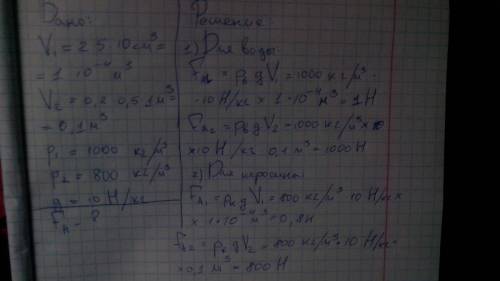 Дано:
V₁ = 2·5·10 см³ =
= 1·10⁻⁴ м³
V₂ = 0,2·0,5·1 м³ =
= 0,1 м³
ρ₁ = 1000 кг/м³
ρ₂ = 800 кг/м³
g = 10 Н/кг
Fₐ - ?
Решение:
1) Для воды:
Fₐ₁ = ρв g V₁ = 1000 кг/м³ ·
· 10 Н/кг × 1·10⁻⁴ м³ = 1 Н
Fₐ₂ = ρв g V₂ = 1000 кг/м³ ×
× 10 Н/кг · 0,1 м³ = 1000 Н
2) Для керосина:
Fₐ₁ = ρк g V₁ = 800 кг/м³ · 10 Н/кг ×
× 1·10⁻⁴ м³ = 0,8 Н
Fₐ₂ = ρк g V₂ = 800 кг/м³ · 10 Н/кг ×
× 0,1 м³ = 800 Н